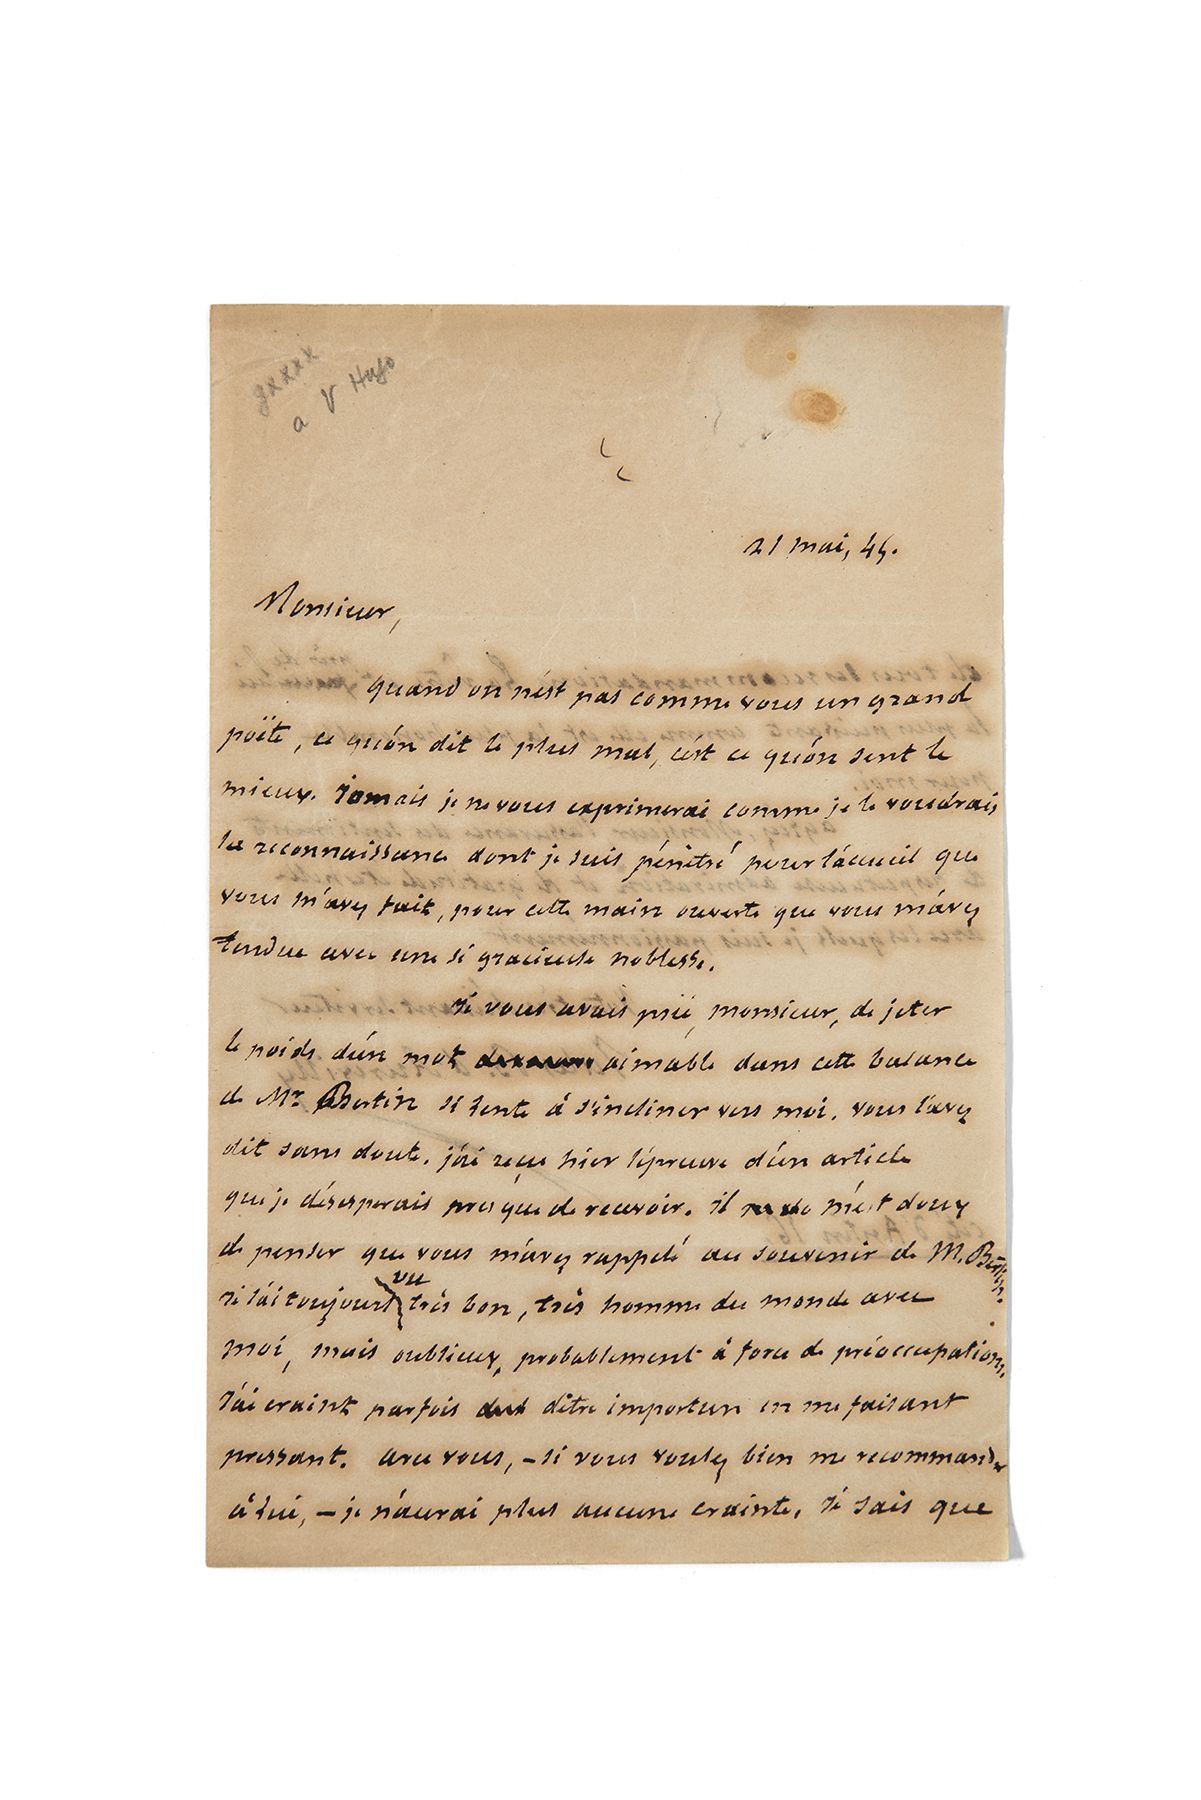 gxxxx
a V Hugo
21 mai, 45.
Monsieur,
quand on n'est pas comme vous un grand
poëte, ce qu'on dit le plus mal, c'est ce qu'on sent le
mieux. Jamais je ne vous exprimerai comme je le voudrais
la reconnaissance dont je suis pénétré pour l'accueil que
vous m'avez fait, pour cette main ouverte que vous m'avez
tendue avec une si gracieuse noblesse.
Je vous avais prié, monsieur, de jeter
le poids d'un mot aimable dans cette balance
de Mr. Bertin si lente à s'incliner vers moi. vous l'avez
dit sans doute. j'ai reçu hier l'épreuve d'un article
que je désespérais presque de recevoir. il m'est doux
de penser que vous m'avez rappelé au souvenir de M. Bertin.
Je l'ai toujours vu très bon, très homme du monde avec
moi, mais oublieux, probablement à force de préoccupations.
J'ai craint parfois d'être importun en me faisant
pressant. avec vous, – si vous voulez bien me recommander
à lui, – je n'aurai plus aucune crainte. Je sais que